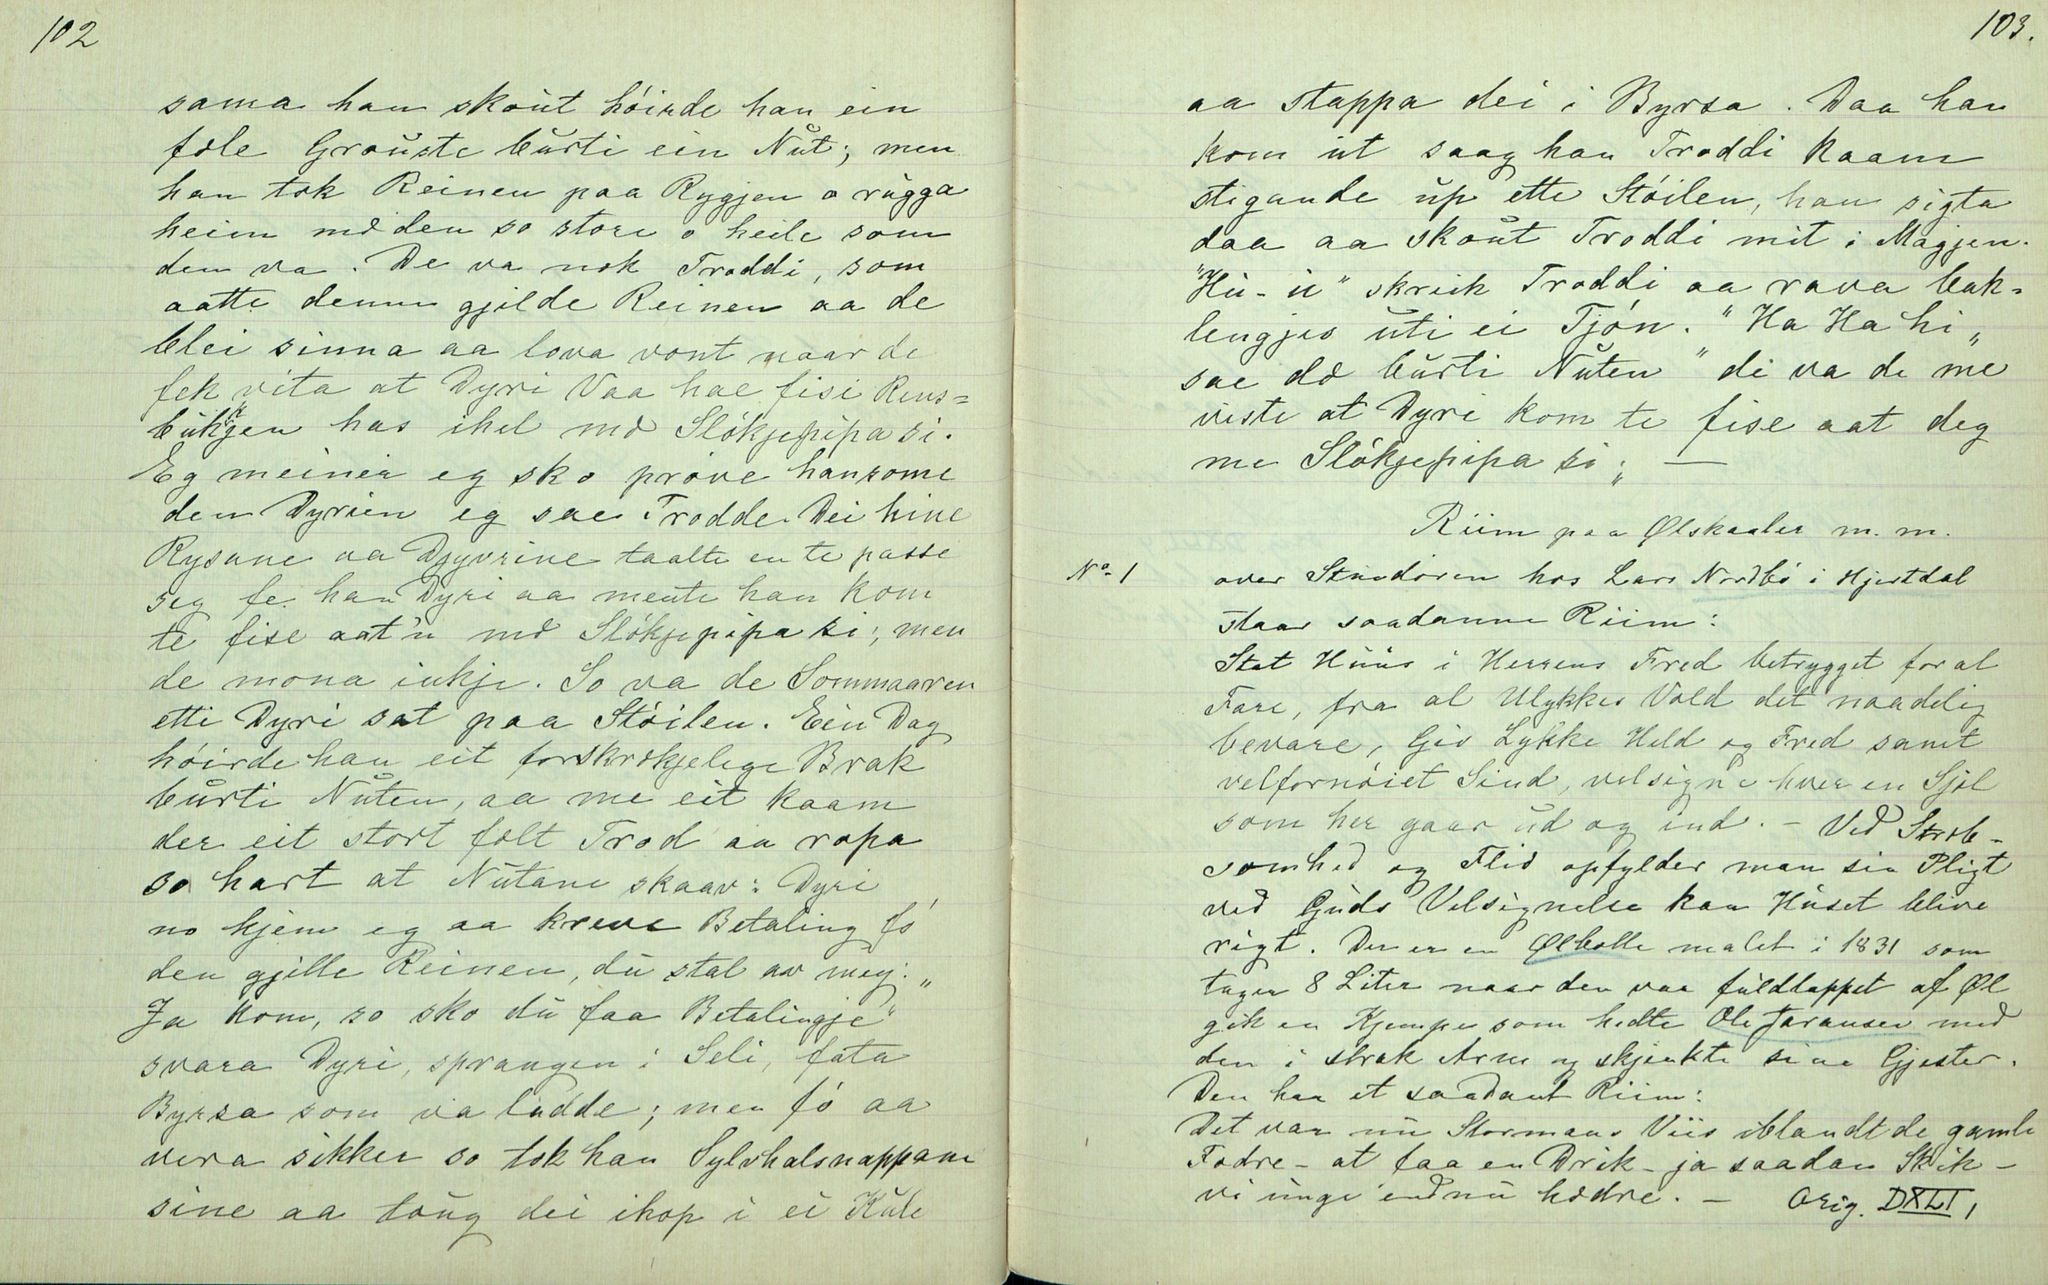 102
sama han skout höirde han ein
fæle Grouste burti ein Nut; men
han tok Reinen paa Rygjen o rugga
heim mæ den so store o heile som
den va. De va nok Troddi, som
aatte denne gjilde Reinen aa de
blei sinna aa lova vont naar de
fek vita at Dyri Vaa hae fisi Reins=
bukkjen has ihel mæ Slökjepipa si.
Eg meiner eg sko pröve hansome
den Dyrien eg sae Trodde. Dei hine
Rysane va Djyvrine taalte en te passe
seg fe han Dyri aa mente han kom
te fise aat'n mæ Slökjepipa si; men
de mona inkje. So va de Sommaaren
etti Dyri sat paa Stöilen. Ein Dag
höirde han eit forskrækjelege Brak
burti Nuten, aa me eit kaam
der eit stort fælt Trod aa ropa
so hart at Nutane skaav: Dyri
no kjem eg aa kreve Betaling fö
den gjille Reinen, du stal av meg: "
Ja kom, so sko du faa Betalingje"
svara Dyri, sprangen i Seli, fata
Byrsa som va ladde; men fö aa
vera sikker so tok han Sylvhalsnappane
sine aa toug dei ihop i ei Kule
103.
aa stappa dei i Byrsa. Daa han
kom ut saag han Troddi kaam
stigande up ette Stöilen, han sigta
daa aa skout Troddi mit i Magjen.
"Hu-u" skreik Troddi aa rava bak=
lengjes uti ei Tjön. "Ha Ha hi „
sae dæ burti Nuten" di va de me
viste at Dyri kom te fise aat deg
me Slökjepipa si; „ —
Riim paa Ølskaaler m. m.
No 1 over Stuedören hos Lars Nordbö i Hjertdal
staar saadanne Riim:
Stat Huus i Herrens Fred betrygget for al
Fare, fra al Ulykkes Vold det naadelig
bevare, Giv Lykke Held og Fred samt
velfornöiet Sind, velsigne hver en Sjæl
som her gaar ud og ind. – Ved Stræb-
somhed og Flid opfylder man sin Pligt
ved Guds Velsignelse kan Huset blive
rigt. Der er en Ølbolle malet i 1831 som
tager 8 Liter naar den var fuldtappet af Øl
gik en Kjempe som hedte Ole Taransen med
den i strak Arm og skjenkte sine Gjester.
Den har et saadant Riim:
Det var nu Stormans Viis iblandt de gamle
Fædre – at faa en Drik – ja saadan Skik –
vi unge endnu hædre. – Orig. DXLI,